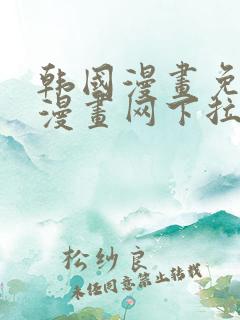 韩国漫畫免
漫畫网下拉
松纱良
未经同意禁止转载